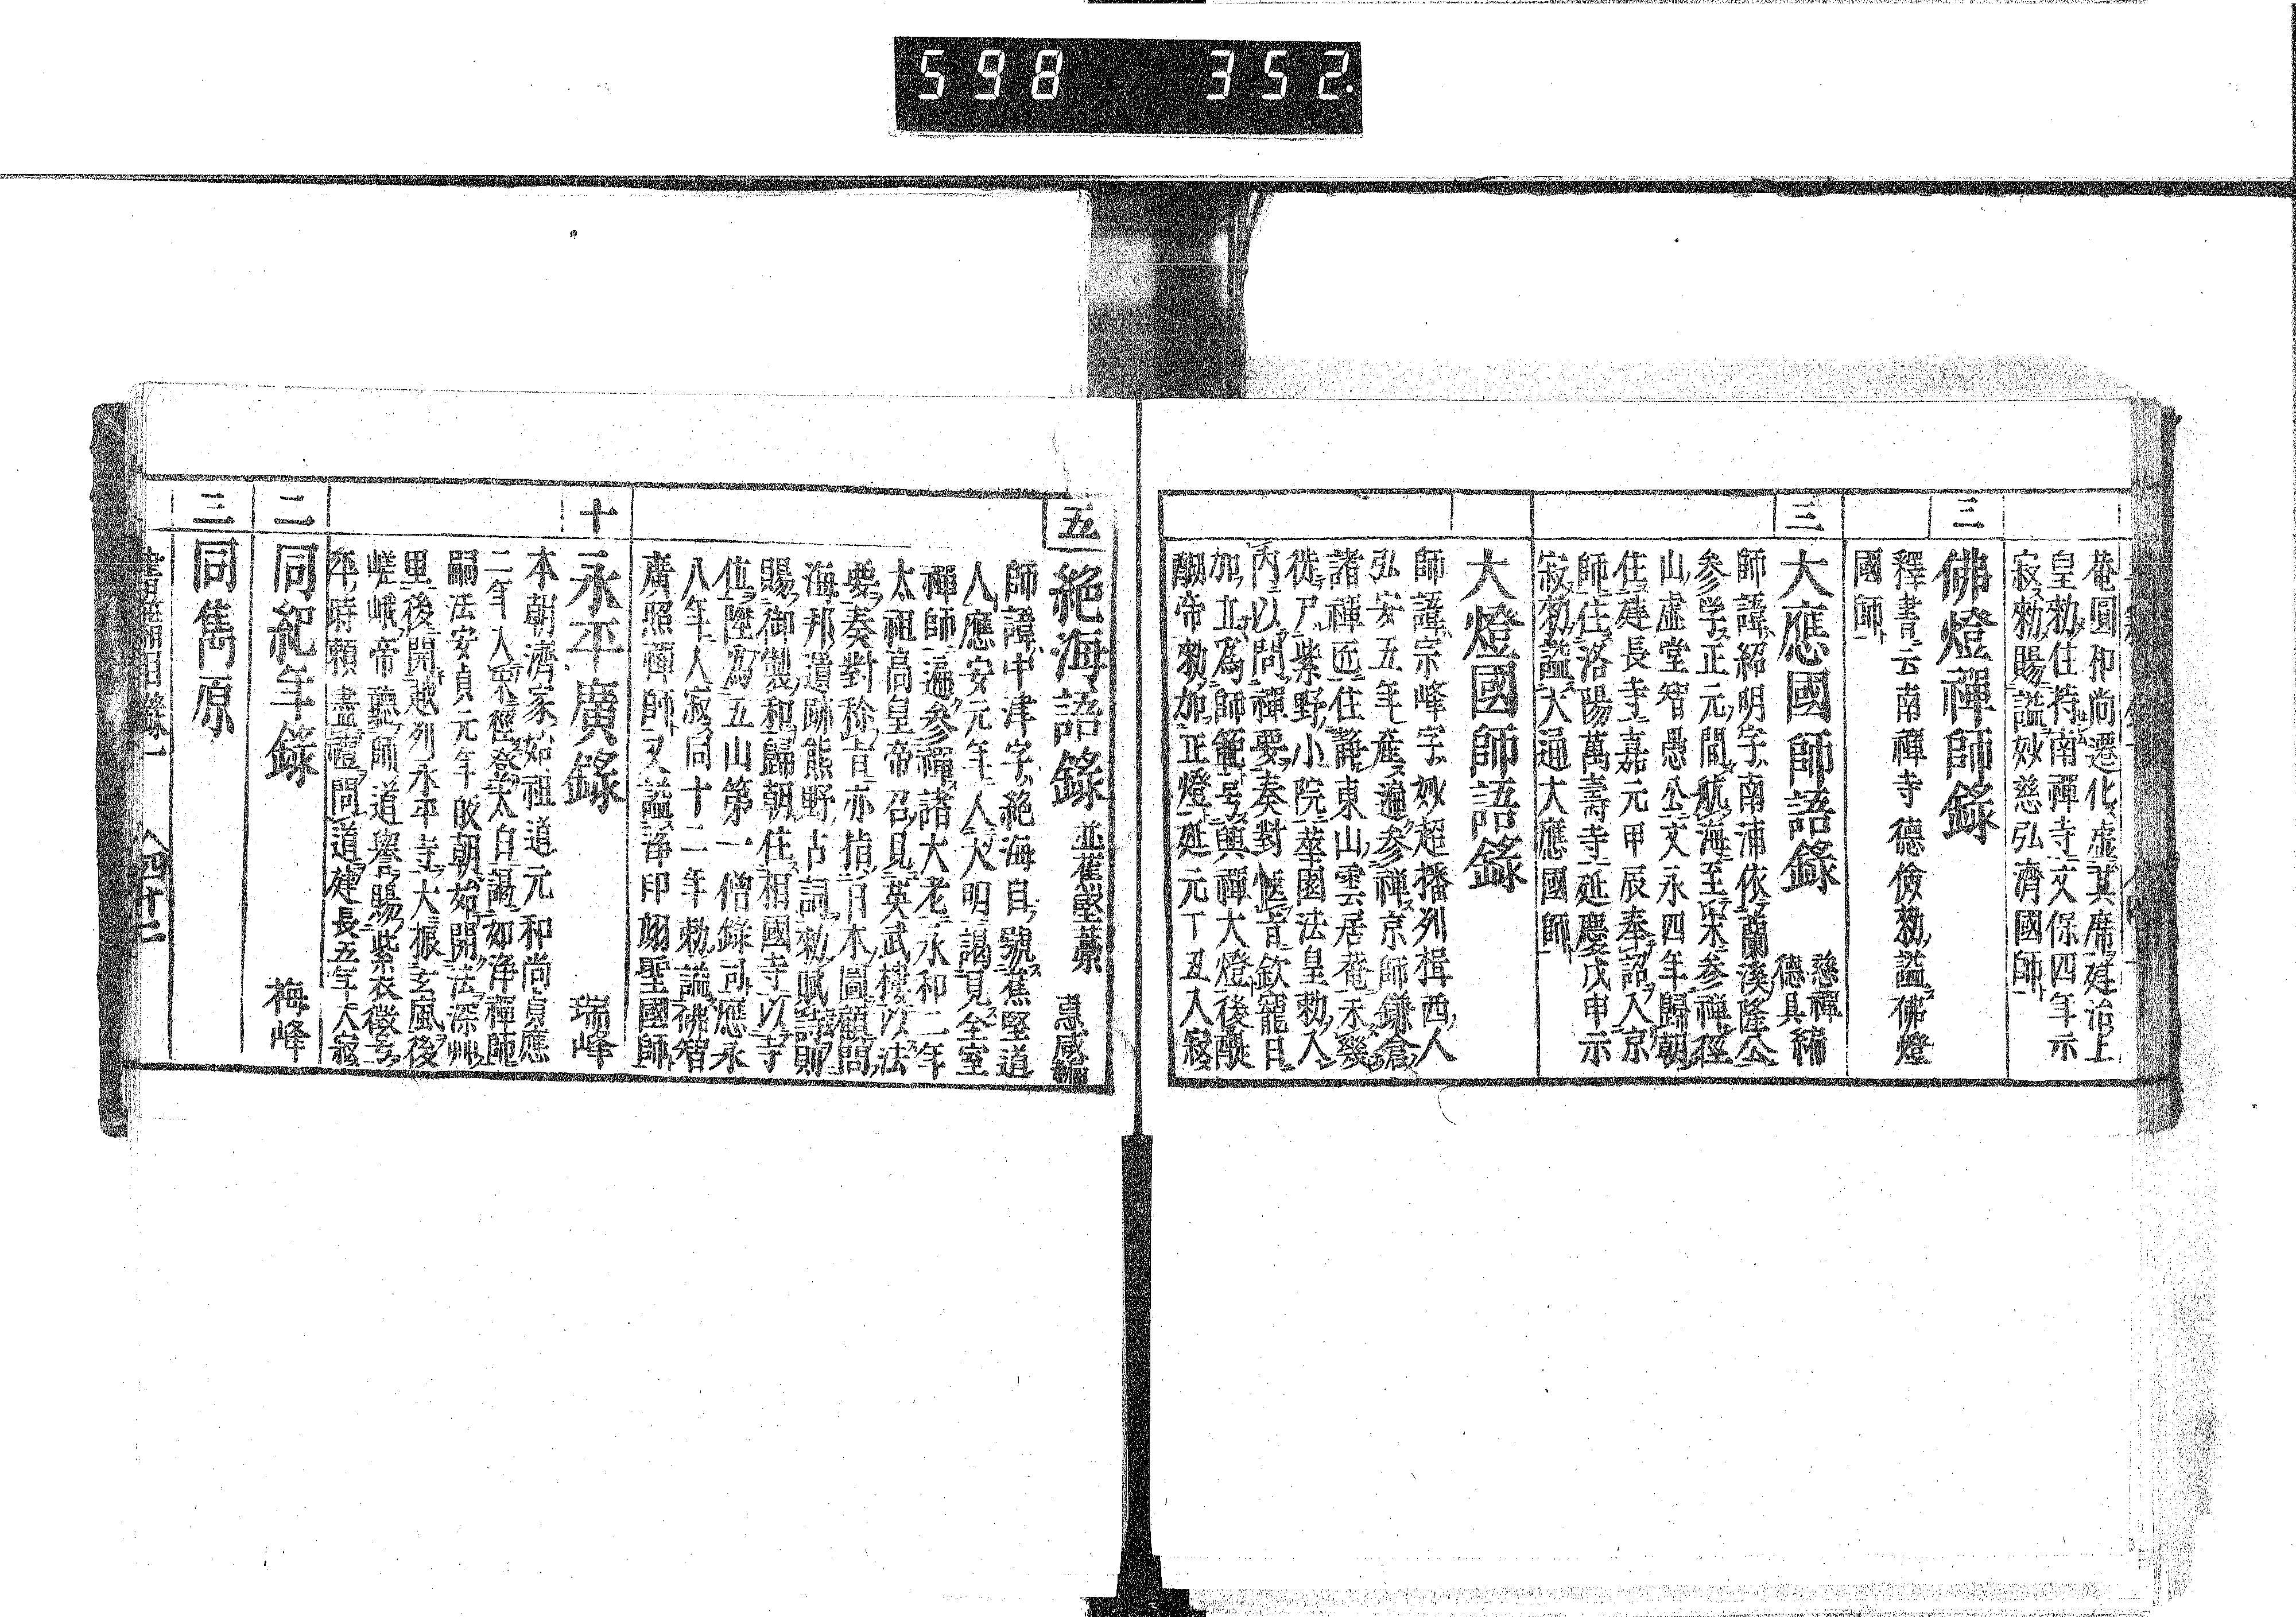 598 352.
菴圓和尚遷化虚其席建治上
皇勅住持南禪寺文保四年示
寂勅賜謚妙慈弘濟國師
二
佛燈禪師錄
釋書云南禪寺德儉勅謚佛燈
國師
三
大應國師語錄 慈禪德具編
師諱紹明字南浦依蘭溪隆公
参学正元間航海至宋参禪徑
山虚堂智愚公文永四年歸朝
住建長寺嘉元甲辰奉詔入京
師住洛陽萬壽寺延慶戊申示
寂勅謚大通大應國師
大燈國師語錄
師諱宗峰字妙超播列揖西人
弘安五年産遍参禪京師鎌倉
諸禪匠住靜東山雲居菴未幾
徙尸紫野小院萃園法皇勅入
内以問禪要奏對愜旨欽寵日
加立爲師範号興禪大燈後醍
醐帝勅加正燈延元丁丑入寂
五
絶海語錄 並蕉堅藁 惠咸編
師諱中津字絶海自號蕉堅道
人應安元年入大明謁見全室
禪師遍参禪諸大老永和二年
太祖高皇帝召見英武樓以法
要奏對称旨亦指日本圖顧問
海邦遺跡熊野古詞勅賦詩則
賜御製和歸朝住相國寺以寺
位陞爲五山第一僧錄司應永
八年入寂同十二年勅謚佛智
廣照禪師又謚浄印翊聖國師
十
永平廣錄 瑞峰
本朝濟家始祖道元和尚貞應
二年入宋徑登太白謁如浄禪師
嗣法安貞元年皈朝始開法深艸
里後開越列永平寺大振玄風後
嵯峨帝聽師道譽賜紫衣徽号
平時頼盡禮問道建長五年入寂
二
同紀年錄 梅峰
三
同雋原
四十二